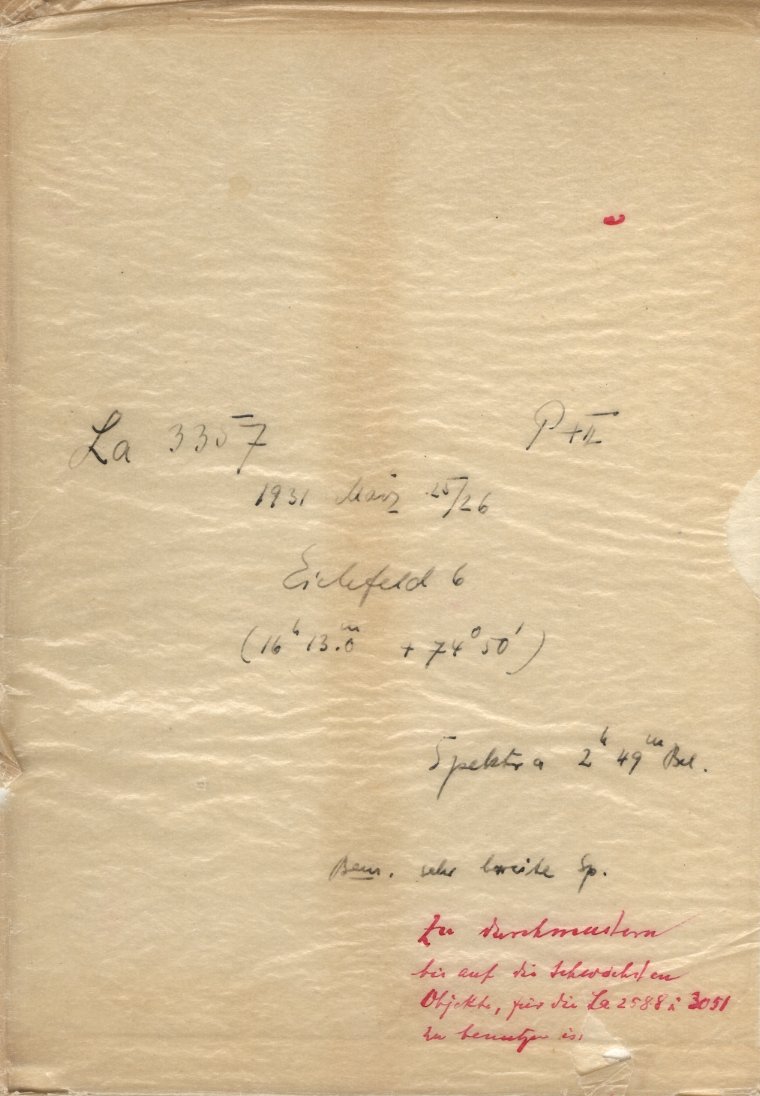 La 3357 P+II
1931 März 25/26
Eichfeld 6
(16h 13.0m + 74° 50')
Spektra 2h 49m Bel.
Bem. sehr breite Sp.
Zu durchmustern
bis auf die schwächsten
Objekte, für die La 2588 u 3051
zu benutzen ist